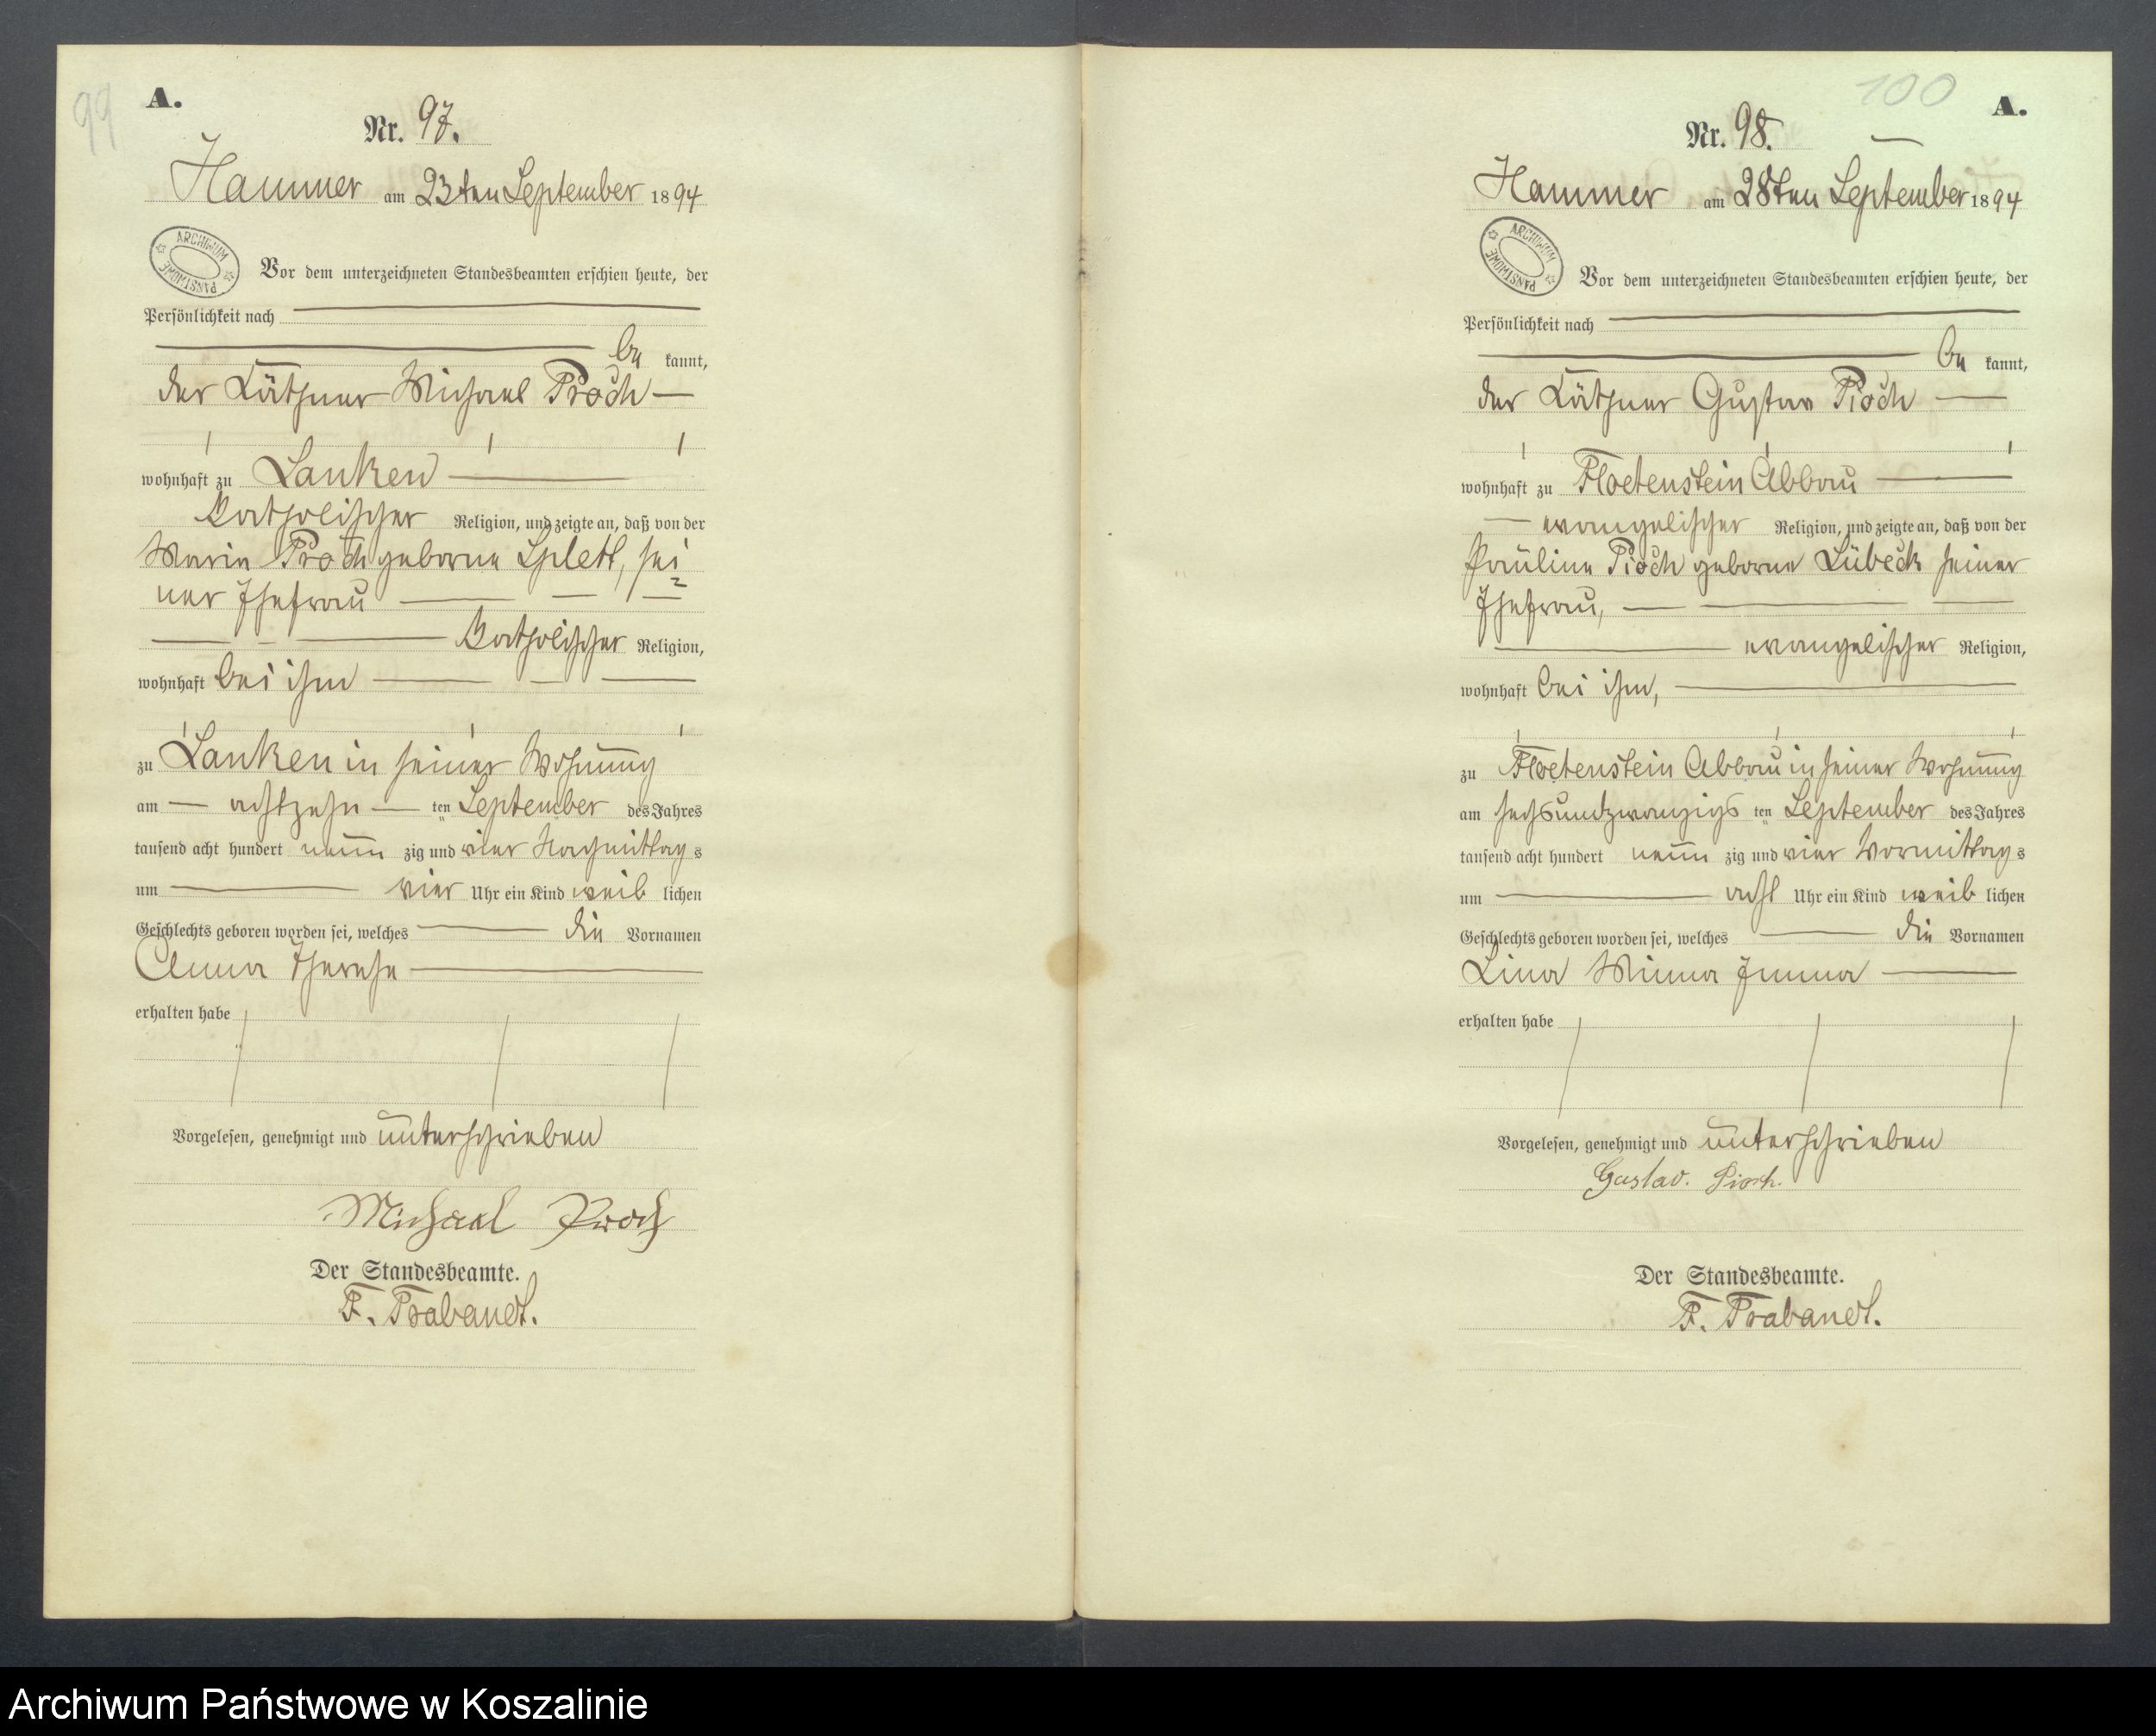 99
A.
Nr. 97.
Hammer am 23ten September 1894
ARCHIWUM PAŃSTWOWE
Vor dem unterzeichneten Standesbeamten erschien heute, der
Persönlichkeit nach
be kannt,
der Käthner Michael Proch
wohnhaft zu Lanken
Katholischer Religion, und zeigte an, daß von der
Maria Proch geborne Splett, sei
ner Ehefrau
Katholischer Religion,
wohnhaft bei ihm
zu Lanken in seiner Wohnung
am achtzehn ten September des Jahres
tausend acht hundert neun zig und vier Nachmittag s
um vier Uhr ein Kind weib lichen
Geschlechts geboren worden sei, welches die Vornamen
Anna Therese
erhalten habe
Vorgelesen, genehmigt und unterschrieben
Michael Proch
Der Standesbeamte.
F. Trabandt.
100
A.
Nr. 98.
Hammer am 28ten September 1894
ARCHIWUM PAŃSTWOWE
Vor dem unterzeichneten Standesbeamten erschien heute, der
Persönlichkeit nach
be kannt,
der Käthner Gustav Pioch
wohnhaft zu Floetenstein Abbau
evangelischer Religion, und zeigte an, daß von der
Pauline Pioch geborne Lübeck seiner
Ehefrau,
evangelischer Religion,
wohnhaft bei ihm,
zu Floetenstein Abbau in seiner Wohnung
am sechsundzwanzigs ten September des Jahres
tausend acht hundert neun zig und vier Vormittag s
um acht Uhr ein Kind weib lichen
Geschlechts geboren worden sei, welches die Vornamen
Lina Minna Emma
erhalten habe
Vorgelesen, genehmigt und unterschrieben
Gustav. Pioch.
Der Standesbeamte.
F. Trabandt.
Archiwum Państwowe w Koszalinie